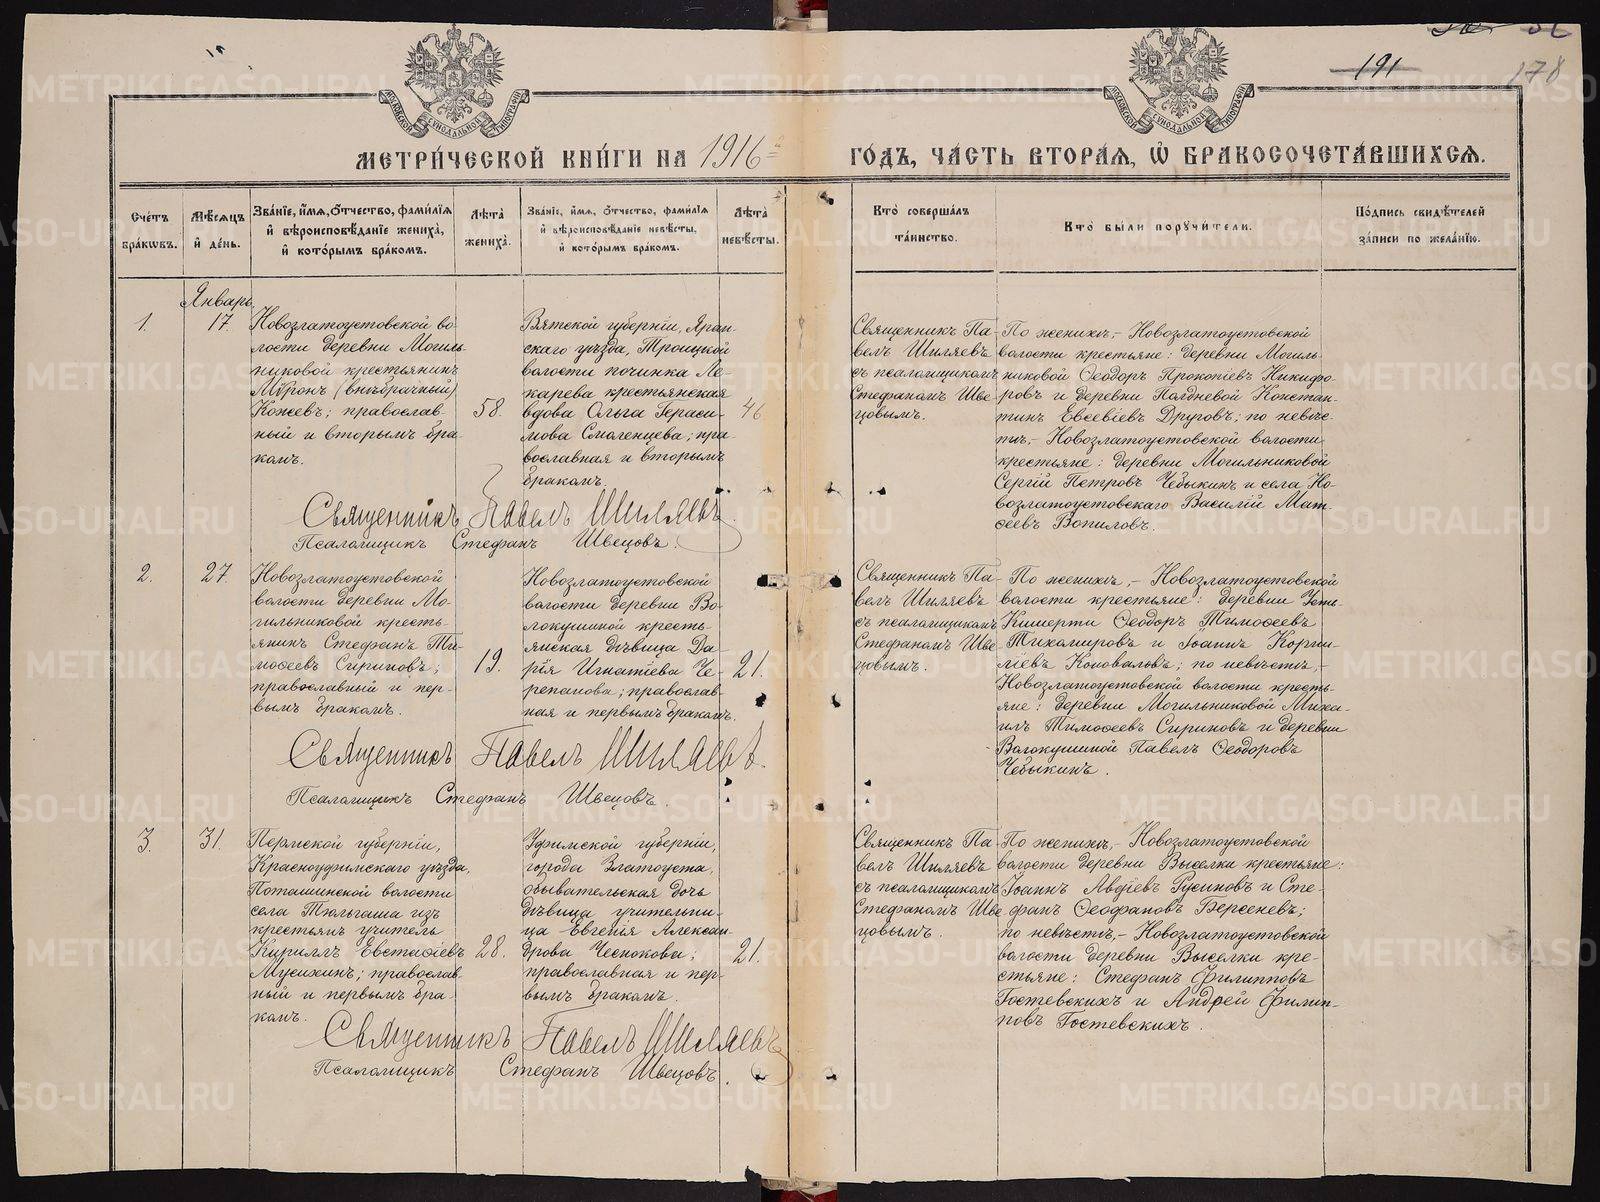 191
178
МЕТРИЧЕСКОЙ КНИГИ НА 1916 ГОДЪ, ЧАСТЬ ВТОРАЯ, Ѡ БРАКОСОЧЕТАВШИХСЯ.
Счетъ браковъ.
Мѣсяцъ и день.
Званіе, имя, отчество, фамилія и вѣроисповѣданіе жениха, и которымъ бракомъ.
Лѣта жениха.
Званіе, имя, отчество, фамилія и вѣроисповѣданіе невѣсты, и которымъ бракомъ.
Лѣта невѣсты.
Кто совершалъ таинство.
Кто были поручители.
Подпись свидѣтелей записи по желанію.
Январь
1.
17.
Новозлатоустовской во-
лости деревни Могиль-
никовой крестьянинъ
Мѵронъ (внѣбрачный)
Кожевъ; православ-
ный и вторымъ бра-
комъ.
58.
Вятской губерніи, Яран-
скаго уѣзда, Троицкой
волости починка Ле-
карева крестьянская
вдова Ольга Гераси-
мова Смоленцева; пра-
вославная и вторымъ
бракомъ.
46
Священникъ Па-
велъ Шиляевъ
съ псаломщикомъ
Стефаномъ Шве-
цовымъ.
По женихѣ,- Новозлатоустовской
волости крестьяне: деревни Могиль-
никовой Ѳеодоръ Прокопіевъ Никифо-
ровъ и деревни Полдневой Констан-
тинъ Евсевіевъ Друговъ; по невѣс-
тѣ,- Новозлатоустовской волости
крестьяне: деревни Могильниковой
Сергій Петровъ Чебыкинъ и села Но-
возлатоустовскаго Василій Мат-
ѳеевъ Вопиловъ.
Священникъ Павелъ Шиляевъ.
Псаломщикъ Стефанъ Швецовъ.
2.
27.
Новозлатоустовской
волости деревни Мо-
гильниковой кресть-
янинъ Стефанъ Ти-
моѳеевъ Сириновъ;
православный и пер-
вымъ бракомъ.
19.
Новозлатоустовской
волости деревни Во-
локушиной кресть-
янская дѣвица Да-
рія Игнатіева Че-
репанова; православ-
ная и первымъ бракомъ.
21.
Священникъ Па-
велъ Шиляевъ
съ псаломщикомъ
Стефаномъ Шве-
цовымъ.
По женихѣ,- Новозлатоустовской
волости крестьяне: деревни Усть-
Кишерти Ѳеодоръ Тимоѳеевъ
Тихомировъ и Іоаннъ Корни-
ліевъ Коновалевъ; по невѣстѣ,-
Новозлатоустовской волости кресть-
яне: деревни Могильниковой Миха-
илъ Тимоѳеевъ Сириновъ и деревни
Волокушиной Павелъ Ѳеодоровъ
Чебыкинъ.
Священникъ Павелъ Шиляевъ.
Псаломщикъ Стефанъ Швецовъ.
3.
31.
Пермской губерніи,
Красноуфимскаго уѣзда,
Поташинской волости
села Тюльгаша изъ
крестьянъ учитель
Кириллъ Евстафіевъ
Мусихинъ; православ-
ный и первымъ бра-
комъ.
28.
Уфимской губерніи,
города Златоуста,
обывательская дочь
дѣвица учительни-
ца Евгенія Алексан-
дрова Чеснокова;
православная и пер-
вымъ бракомъ.
21.
Священникъ Па-
велъ Шиляевъ
съ псаломщикомъ
Стефаномъ Шве-
цовымъ.
По женихѣ,- Новозлатоустовской
волости деревни Выселка крестьяне:
Іоаннъ Авдіевъ Русиновъ и Сте-
фанъ Ѳеофановъ Версеневъ;
по невѣстѣ,- Новозлатоустовской
волости деревни Выселки кре-
стьяне: Стефанъ Филипповъ
Гостевскихъ и Андрей Филип-
повъ Гостевскихъ.
Священникъ Павелъ Шиляевъ
Псаломщикъ Стефанъ Швецовъ.
METRIKI.GASO-URAL.RU